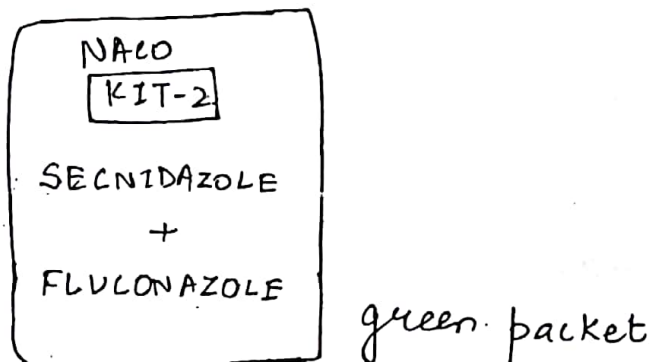 NACO
KIT-2
SECNIDAZOLE
+
FLUCONAZOLE
green packet